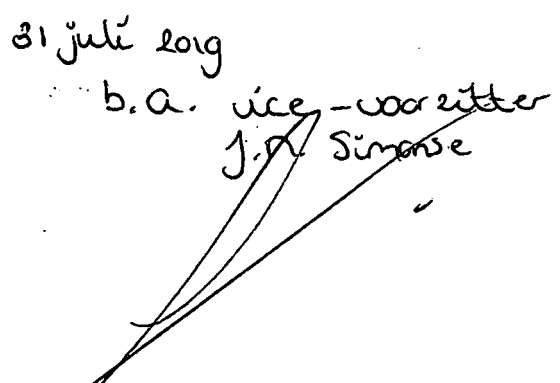 31 juli 2019
b.a. vice-voorzitter
J.N. Simonse